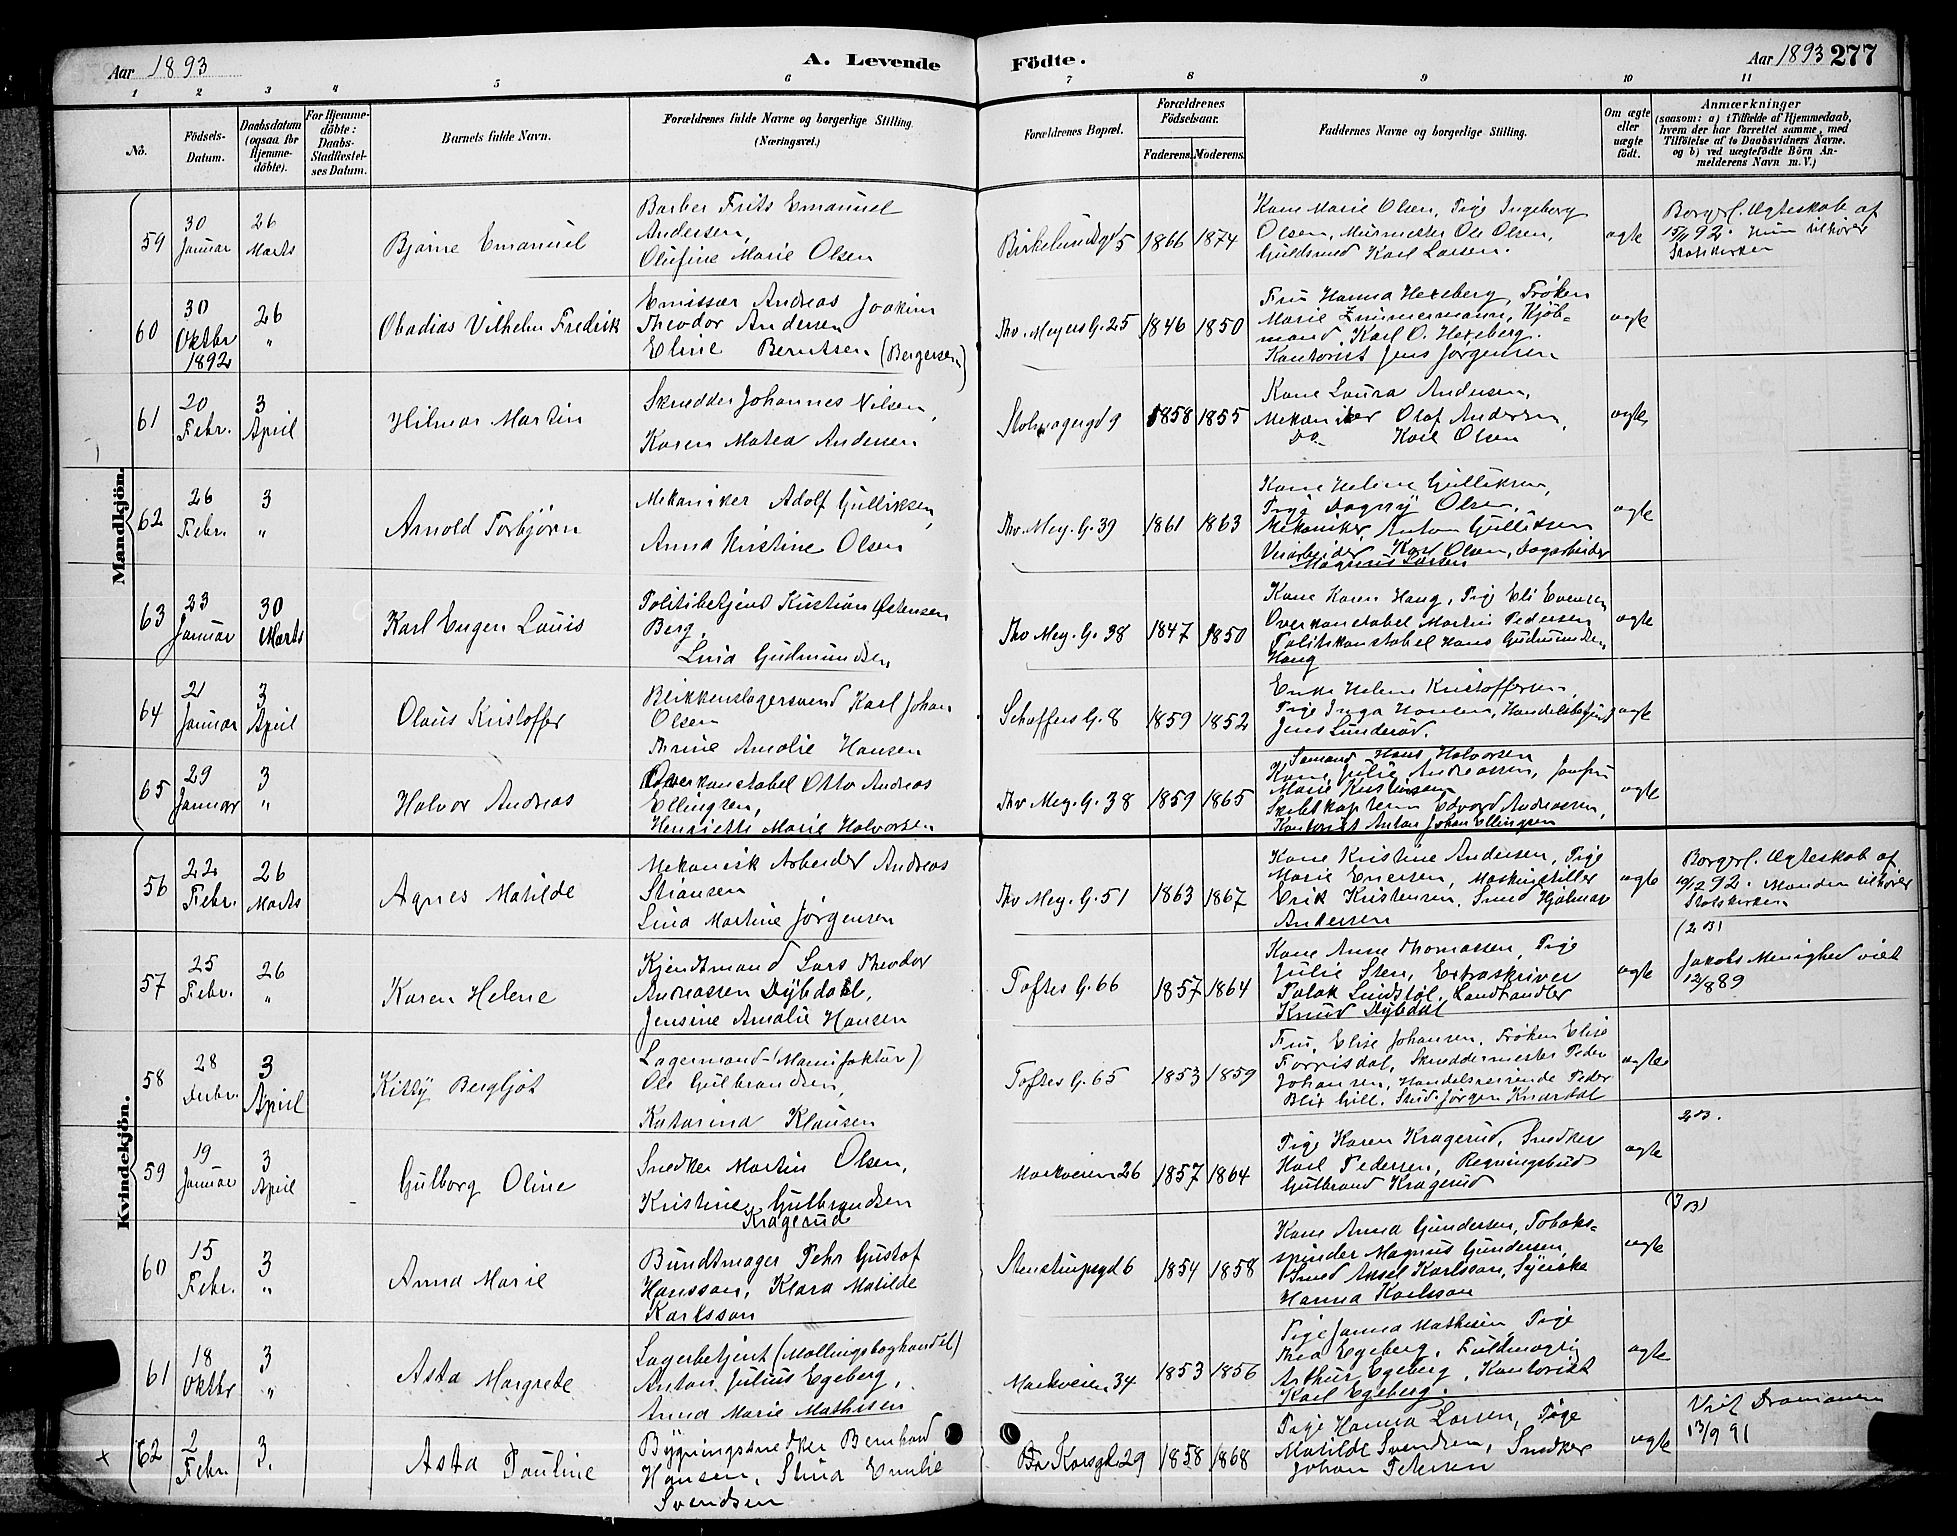 Aar 1893 A. Levende Födte. Aar 1893 277
1 2 3 4 5 6 7 8 9 10 11
No. Födsels-Datum. Daabsdatum (ogsaa for Hjemmedöbte). For Hjemmedöbte: Daabs-Stadfestelses Datum. Barnets fulde Navn. Forældrenes fulde Navne og borgerlige Stilling. (Næringsvei.) Forældrenes Bopæl. Forældrenes Födselsaar. Faderens. Moderens. Faddernes Navne og borgerlige Stilling. Om ægte eller uægte födt. Anmærkninger (saasom: a) i Tilfælde af Hjemmedaab, hvem der har forrettet samme, med Tilföielse af to Daabsvidners Navne. og b) ved uægtefödte Börn Anmelderens Navn m. V.)
Mandkjön.
59 30 Januar 26 Marts Bjarne Emanuel
Barber Frits Emanuel
Andersen,
Olufine Marie Olsen
Birkelundsgd 5 1866 1874
Kone Marie Olsen, Pige Ingeborg
Olsen, Murmester Ole Olsen,
Guldsmed Karl Larsen.
ægte
Borgerl. Ægteskab af
15/11 92. Hun tilhører
Statskirken
60 30 Oktbr 1892 26 " Obadias Vilhelm Fredrik
Emissær Andreas Joakim
Theodor Andersen
Eline Berntsen (Bergersen)
Thv. Meyers G. 25 1846 1850
Fru Hanna Hexeberg, Frøken
Marie Zimmermann, Kjøb-
mand Karl O. Hexeberg.
Kontorist Jens Jørgensen
ægte
61 20 Febr. 3 April Hilmar Martin
Skrædder Johannes Nilsen,
Karen Matea Andersen
Stolmagergd 9 1858 1855
Kone Laura Andersen,
Mekaniker Olaf Andersen,
Do Karl Olsen
ægte
62 26 Febr. 3 " Arnold Torbjørn
Mekaniker Adolf Gulliksen,
Anna Kristine Olsen
Thv. Mey. G. 39 1861 1863
Kone Helene Gulliksen,
Pige Dagny Olsen,
Mekaniker, Anton Gulliksen
Karl Olsen, Dagarbeider
Magnus Larsen
ægte
63 23 Januar 30 Marts Karl Eugen Louis
Politibetjent Kristian Østensen
Berg,
Lina Gudmundsen
Thv Mey. G. 38 1847 1850
Kone Karen Haug, Pige Eli Evensen
Overkonstabel Martin Pedersen
Politikonstabel Hans Gudmundsen
Haug
ægte
64 21 Januar 3 April Olaus Kristoffer
Blikkenslagersvend Karl Johan
Olsen
Thrine Amalie Hansen
Schaffers G. 8 1859 1852
Enke Helene Kristoffersen,
Pige Inga Hansen, Handelsbetjent
Jens Lunderød.
ægte
65 29 Januar 3 " Halvor Andreas
Overkonstabel Otto Andreas
Ellingsen,
Henriette Marie Halvorsen
Thv Mey. G. 38 1859 1865
Sømand Hans Halvorsen
Kone Julie Andreassen, Jomfru
Marie Kristensen
Skibskaptein Edvard Andreassen,
Kontorist Anton Johan Ellingsen
ægte
Kvindekjön.
56 22 Febr. 26 Marts Agnes Matilde
Mekanisk Arbeider Andreas
Stiansen
Lina Martine Jørgensen
Thv Mey. G. 51 1863 1867
Kone Kristine Andersen, Pige
Marie Enersen, Maskinstiller
Erik Kristensen, Smed Hjalmar
Andersen
ægte
Borgerl. Ægteskab af
10/12 92. Manden tilhører
Statskirken
57 25 Febr. 26 " Karen Helene
Kjendtmand Lars Theodor
Andreassen Dybdahl,
Jensine Amalie Hansen
Toftes G. 66 1857 1864
Kone Anne Thomassen, Pige
Julie Sten, Extraskriver
Tolak Lindstøl, Landhandler
Knud Dybdal
ægte
(2 B)
Jakobs Menighed viet
12/8 89
58 28 Decbr. 3 April Kitty Bergljot
Lagermand (Manufaktur)
Ole Gulbrandsen,
Katarina Klausen
Toftes G. 65 1853 1859
Fru, Elise Johansen, Frøken Elise
Forrisdal, Skræddermester Peder
Johansen, Handelsreisende Peder
Blix Gill. Stud. Jørgen Knardal
ægte
59 19 Januar 3 April Gulborg Oline
Snedker Martin Olsen,
Kristine Gulbrandsen
Kragerud
Markveien 26 1857 1864
Pige Karen Kragerud, Snedker
Karl Pedersen, Regningsbud
Gulbrand Kragerud
ægte
2 B.
60 15 Febr. 3 " Anna Marie
Bundtmager Pehr Gustof
Hansson, Klara Matilde
Karlsson
Stenstrupsgd 6 1854 1858
Kone Anna Gundersen, Tobaks-
spinder Magnus Gundersen,
Smed Axsel Karlsson, Syerske
Hanna Karlsson
ægte
61 18 Oktbr 3 " Asta Margrete
Lagerbetjent (Mallingsboghandel)
Anton Julius Egeberg,
Anna Marie Mathisen
Markveien 34 1853 1856
Pige Janna Mathisen, Pige
Thea Egeberg, Fuldmægtig
Arthur Egeberg, Kontorist
Karl Egeberg.
ægte
x 62 2 Febr. 3. Asta Pauline
Bygningssnedker Bernhard
Hansen, Stina Emilie
Svendsen
Korsgd. 29 1858 1868
Pige Hanna Larsen, Pige
Matilde Svendsen, Snedker
Johan Petersen
ægte
Viet Drammen
13/9 91